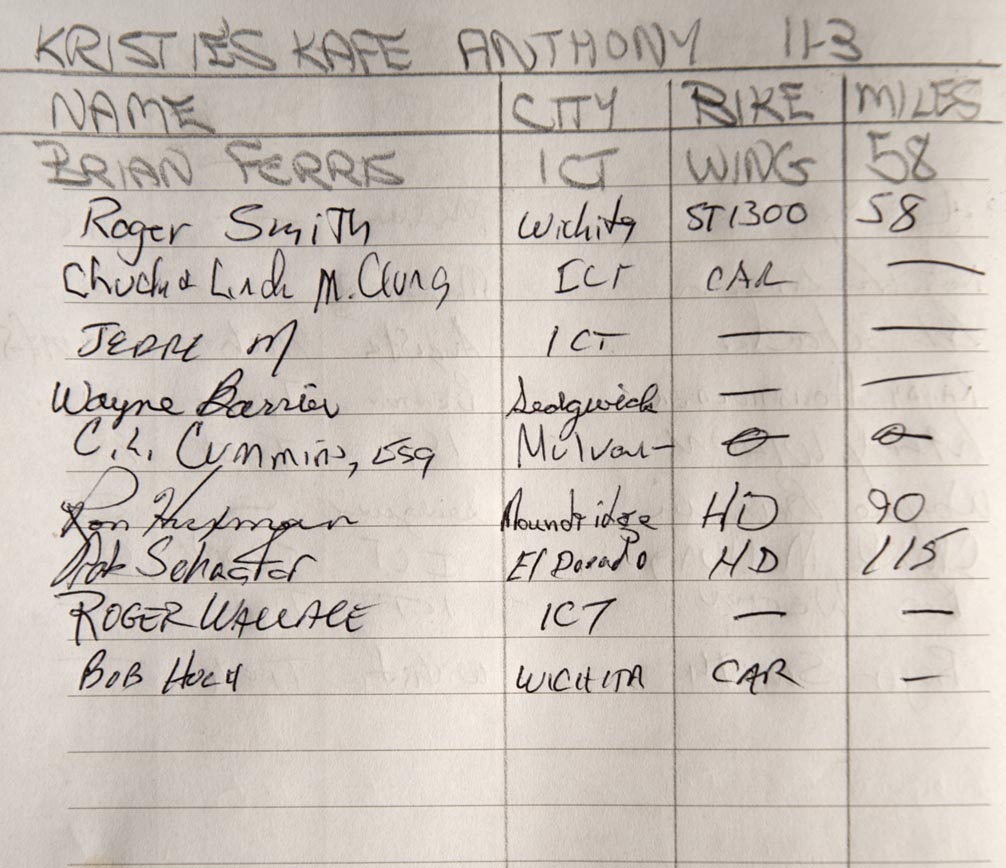 KRISTIE'S KAFE ANTHONY 11-3
NAME CITY BIKE MILES
BRIAN FERRIS ICT WING 58
Roger Smith Wichita ST1300 58
Chuck & Linda McClung ICT CAR —
JERRE M ICT — —
Wayne Barrier Sedgwick — —
C.L. Cummins, ESQ Mulvane
Ron Moundridge HD 90
Schaefer El Dorado HD 115
ROGER WALLACE ICT — —
BOB WICHITA CAR —